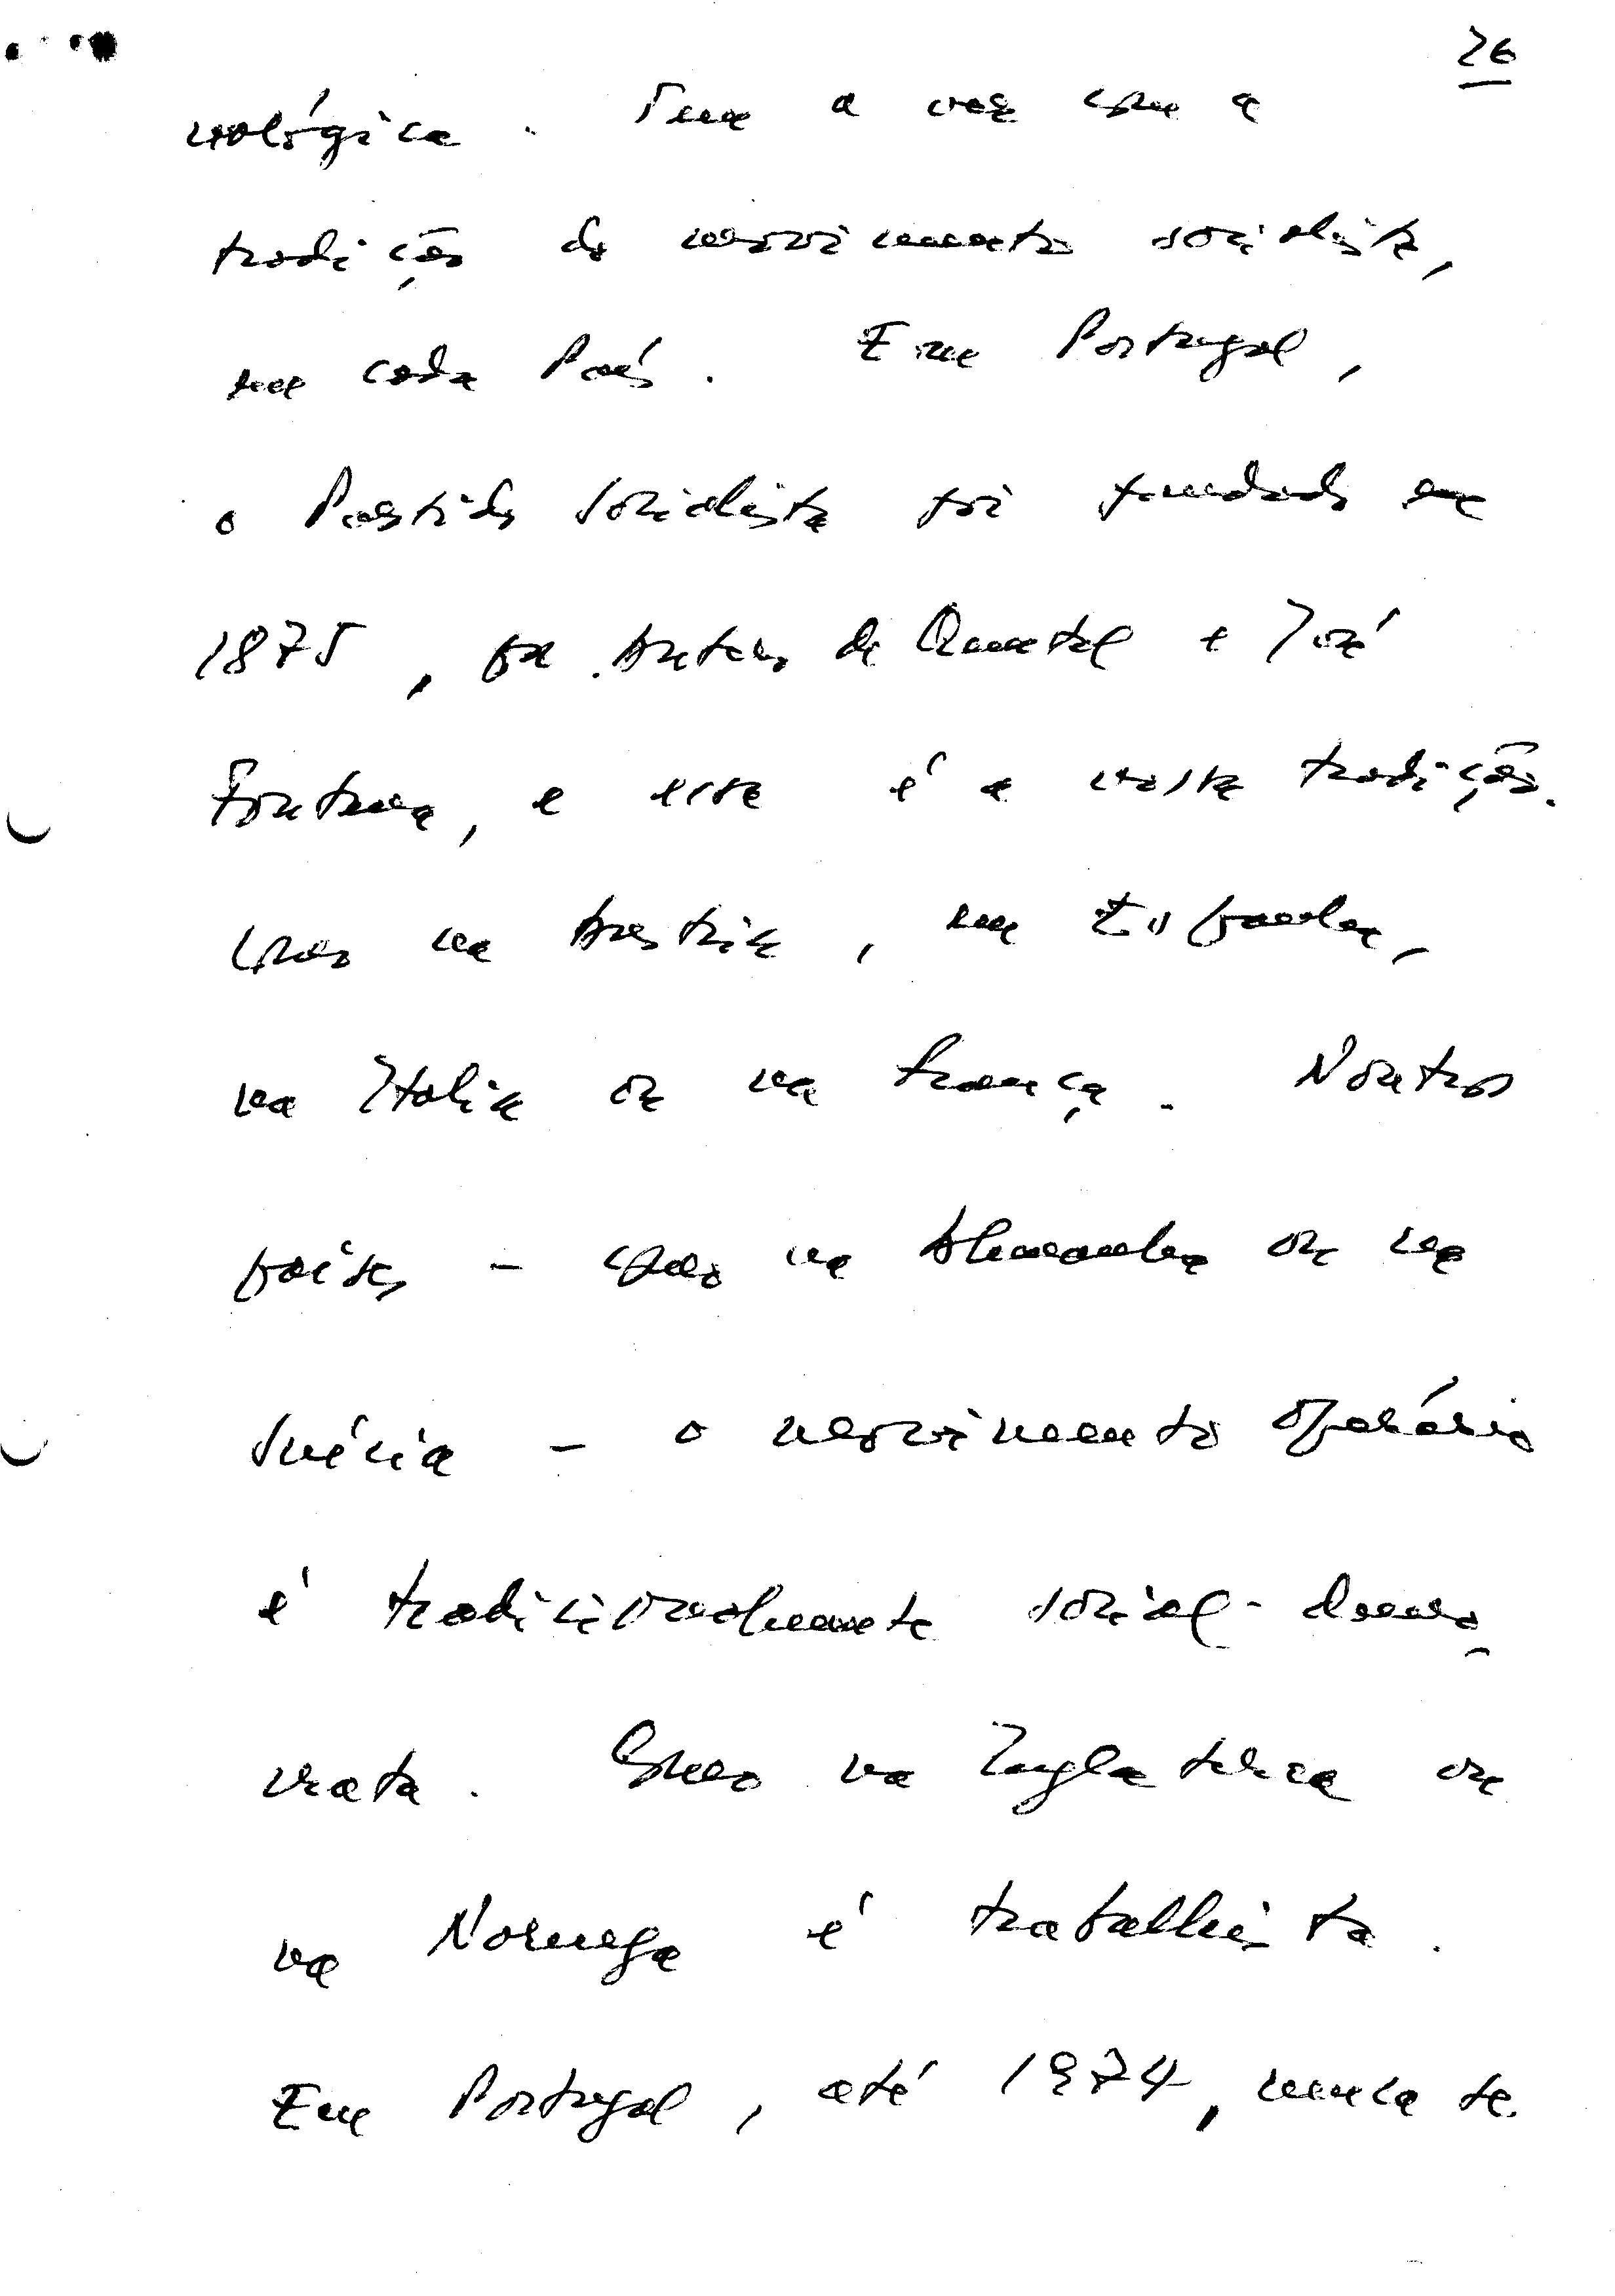 26
nológica. Tem a ver com a
tradição do movimento socialista,
em cada País. Em Portugal,
o Partido Socialista foi fundado em
1875, por Antero de Quental e José
Fontana, e essa é a nossa tradição.
Como na Áustria, em Espanha,
na Itália ou na França. Noutros
países - como na Alemanha ou na
Suécia - o movimento operário
é tradicionalmente social-demo
crata. Como na Inglaterra ou
na Noruega é trabalhista.
Em Portugal, até 1974, nunca te